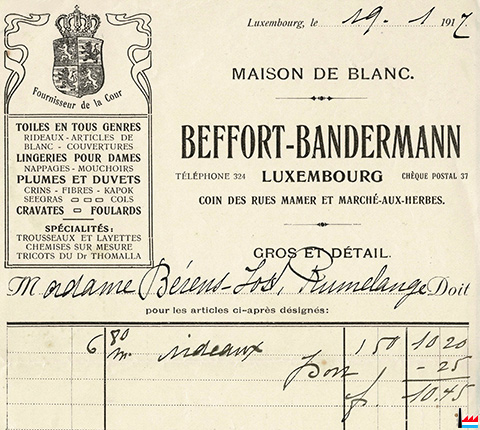 Luxembourg, le 19. 1 1917
Fournisseur de la Cour
TOILES EN TOUS GENRES
RIDEAUX - ARTICLES DE
BLANC - COUVERTURES
LINGERIES POUR DAMES
NAPPAGES - MOUCHOIRS
PLUMES ET DUVETS
CRINS - FIBRES - KAPOK
SEEGRAS COLS
CRAVATES FOULARDS
SPÉCIALITÉS:
TROUSSEAUX ET LAYETTES
CHEMISES SUR MESURE
TRICOTS DU Dr THOMALLA
MAISON DE BLANC.
BEFFORT-BANDERMANN
TÉLÉPHONE 324 LUXEMBOURG CHÈQUE POSTAL 37
COIN DES RUES MAMER ET MARCHÉ-AUX-HERBES.
GROS ET DÉTAIL.
Madame Bérens-Jos, Rumelange Doit
pour les articles ci-après désignés:
6 80 m. rideaux 1 50 10 20
port - 25
fr. 10.45